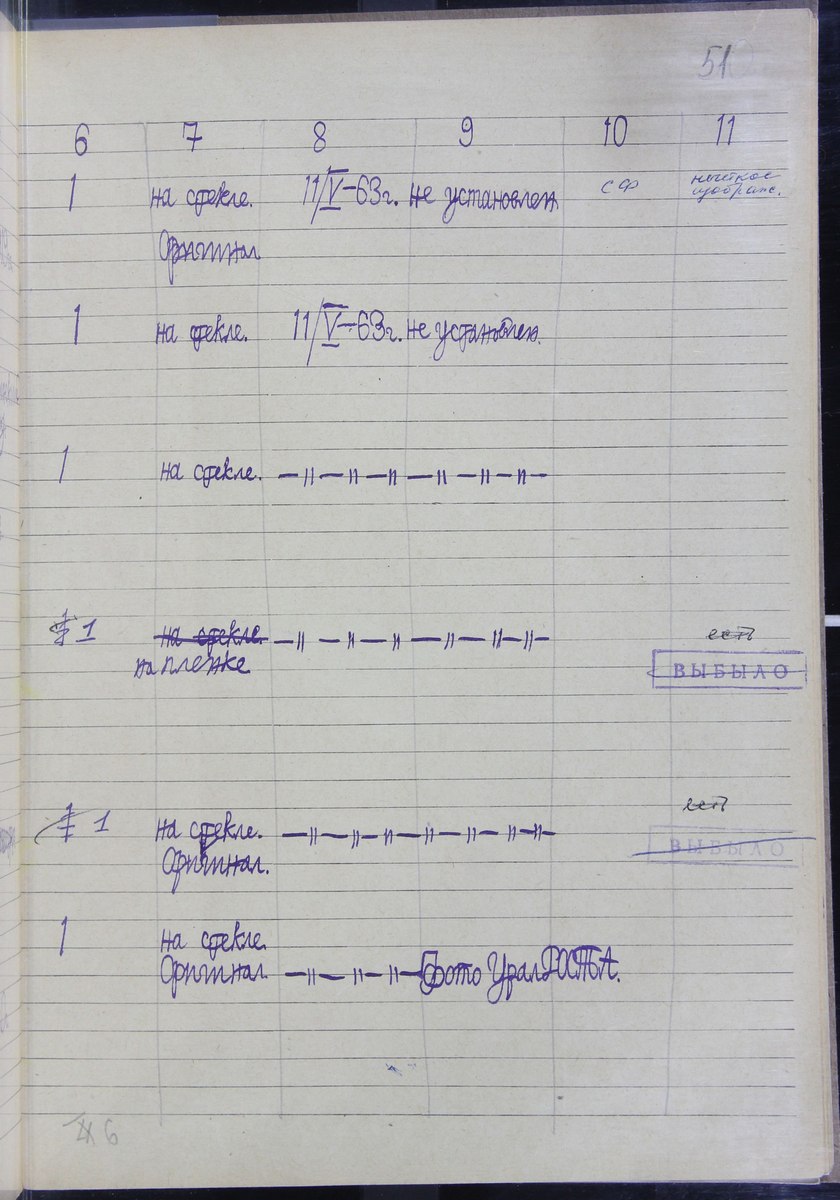 51
6 7 8 9 10 11
1 на стекле. 11/V-63г. не установлен СФ нечеткое
изображ.
Оригинал
1 на стекле. 11/V-63г. не установлен.
1 на стекле. — 〃 — 〃 — 〃 — 〃 — 〃 — 〃 —
1 на стекле. — 〃 — 〃 — 〃 — 〃 — 〃 — 〃 — есть
на пленке ВЫБЫЛО
1 на стекле. — 〃 — 〃 — 〃 — 〃 — 〃 — 〃 — 〃 — есть
Оригинал. ВЫБЫЛО
1 на стекле.
Оригинал — 〃 — 〃 — 〃 — Фото УралРОСТА.
6